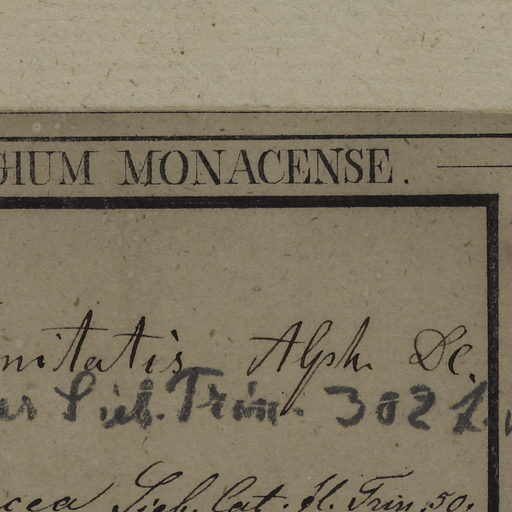 GIUM MONACENSE.
nitatis Alph. DC.
Sieb. Trin. 302
cea Sieb. Cat. Fl. Trin. 50.